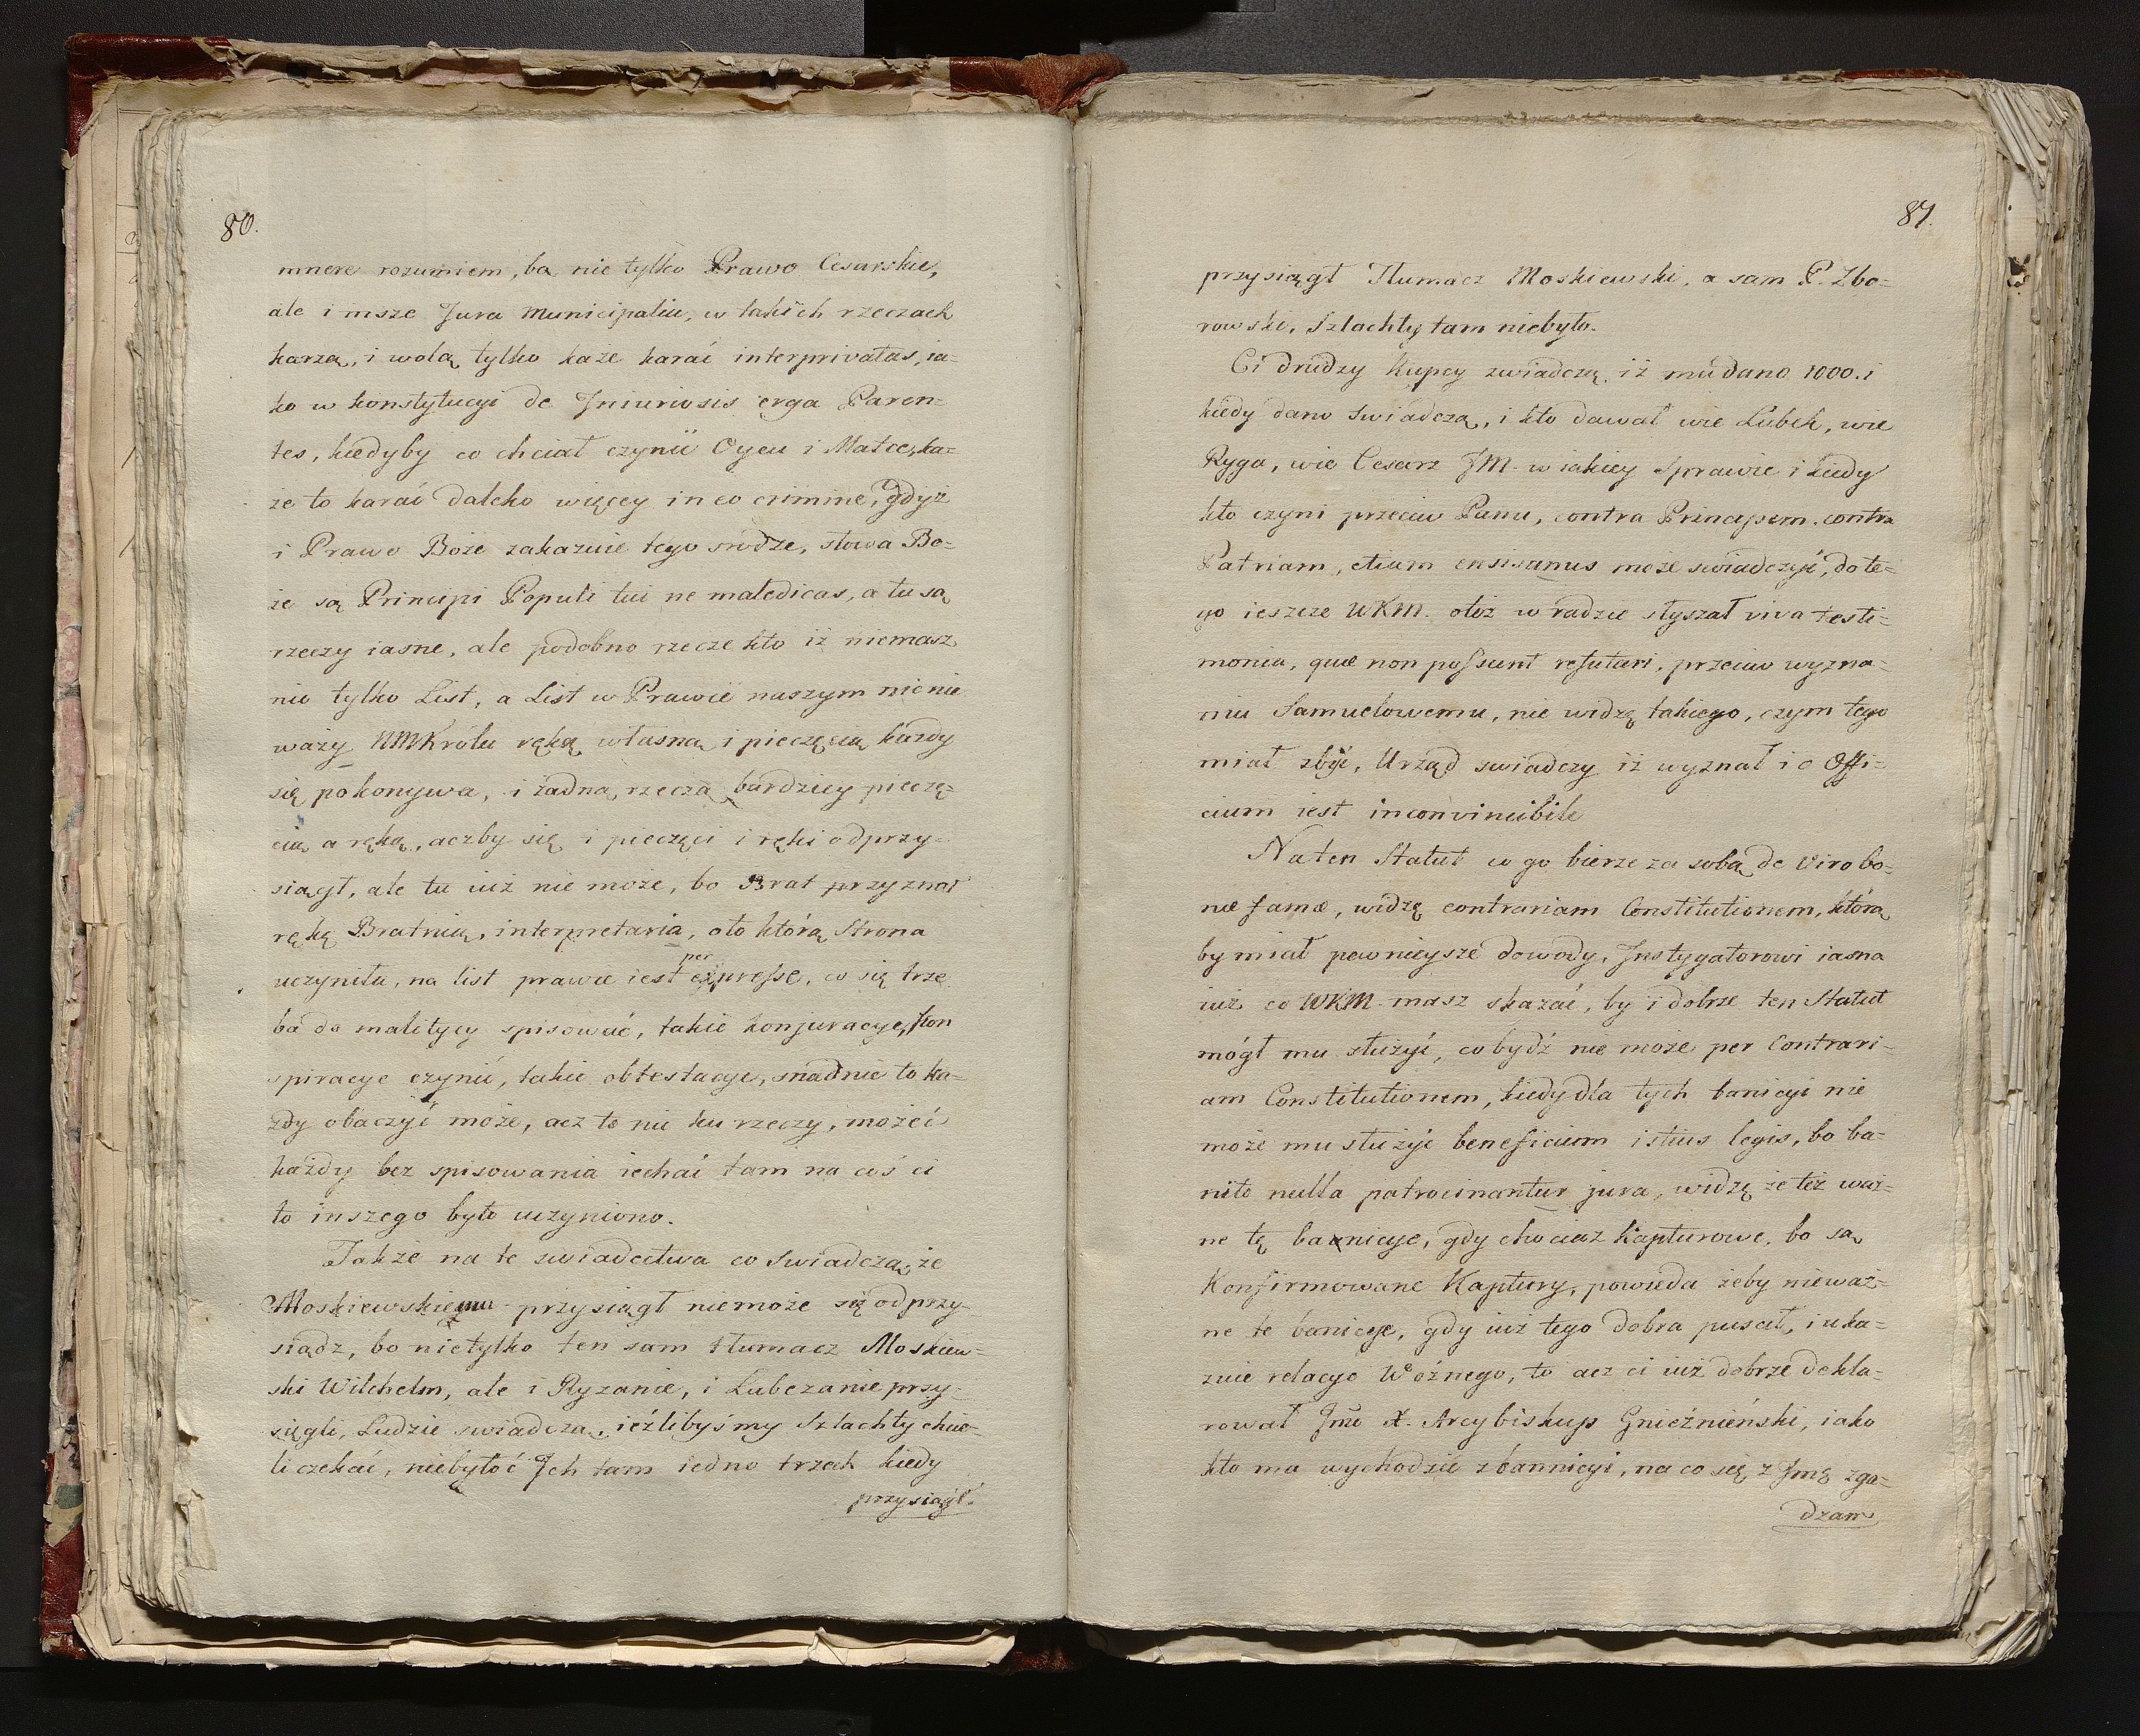 80.
mnere rozumiem, ba nie tylko Prawo Cesarskie,
ale i insze Jura Municipalia, w takich rzeczach
karzą, i wolą tylko każe karać interprivatas, ia-
ko w konstytucyi de Jniuriosis erga Paren-
tes, kiedyby co chciał czynić Oycu i Matce, ka-
że to karać daleko więcey in eo crimine, gdyż
i Prawo Boże zakazuie tego srodze, słowa Bo-
że są Principi Populi tui ne maledicas, a tu są
rzeczy iasne, ale podobno rzecze kto iż niemasz
nic tylko List, a List w Prawie naszym nic nie
waży NMKrólu ręką własną i pieczęcią każdy
się pokonywa, i żadną rzeczą bardziey pieczę-
cią a ręką, aczby się i pieczęci i ręki odprzy-
siągł, ale tu iuż nie może, bo Brat przyznał
ręką Bratnią, interpretaria, oto którą Strona
uczyniła, na list prawie iest expresse, co się trze
per
ba do malitycy spisować, takie konjuracye, kon
spiracye czynić, takie obtestacye, snadnie to ka-
żdy obaczyć może, acz to nie ku rzeczy, możeć
każdy bez spisowania iechać tam na coś ci
to inszego było uczyniono.
Także na te swiadectwa co swiadczą, że
Moskiewskiemu przysiągł niemoże się odprzy-
siądz, bo nietylko ten sam tłumacz Moskiew-
ski Wilchelm, ale i Ryżanie, i Lubczanie przy-
sięgli, Ludzie swiadczą, ieźlibyśmy Szlachty chcie-
li czekać, niebyłoć Jch tam iedno trzech kiedy
przysiągł.
81.
przysiągł Tłumacz Moskiewski, a sam P. Zbo-
rowski, Szlachty tam niebyło.
Ci drudzy Kupcy zwiadczą, iż mu dano 1000. i
kiedy dano swiadczą, i kto dawał wie Lubek, wie
Ryga, wie Cesarz JM. w iakiey sprawie i kiedy
kto czyni przeciw Panu, contra Principem, contra
Patriam, etiam ensisamus może swiadczyć, do te-
go ieszcze WKM. otóż w radzie słyszał viva testi-
monia, quæ non possunt refutari, przeciw wyzna-
niu Samuelowemu, nie widzę takiego, czym tego
miał zbyć, Urząd swiadczy iż wyznał i o Offi-
cium iest inconvincibile
Na ten Statut co go bierze za sobą de Viro bo-
næ famæ, widzę contrariam Constitutionem, którą
by miał pewnieysze dowody, Jnstygatorowi iasna
iuż co WKM. masz skazać, by i dobrze ten Statut
mógł mu służyć, co bydź nie może per Contrari-
am Constitutionem, kiedy dla tych banicyi nie
może mu służyć beneficium istius legis, bo ba-
nito nulla patrocinantur jura, widzę że też waż-
ne tę banicye, gdy chociaz kapturowe, bo są
Konfirmowane Kaptury, powieda żeby nieważ-
ne te banicye, gdy iuż tego dobra puscił, i uka-
zuie relacye Woźnego, to acz ci iuż dobrze dekla-
rował Jmć X. Arcybiskup Gnieźnieński, iako
kto ma wychodzić z bannicyi, na co się z Jmę zga-
dzam